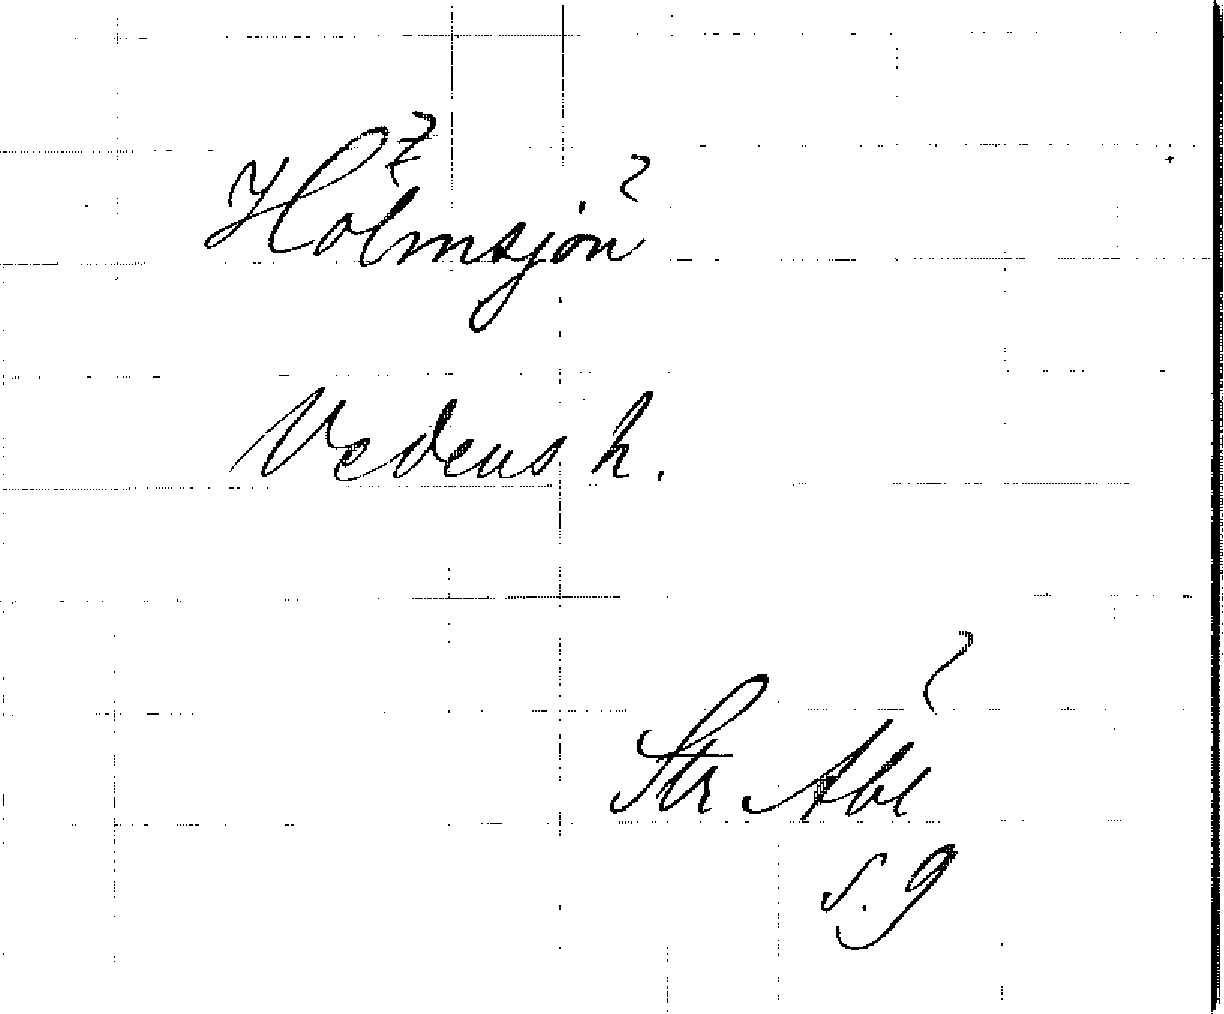 Holmsjön
Vedens h.
Str Abl
s. 9